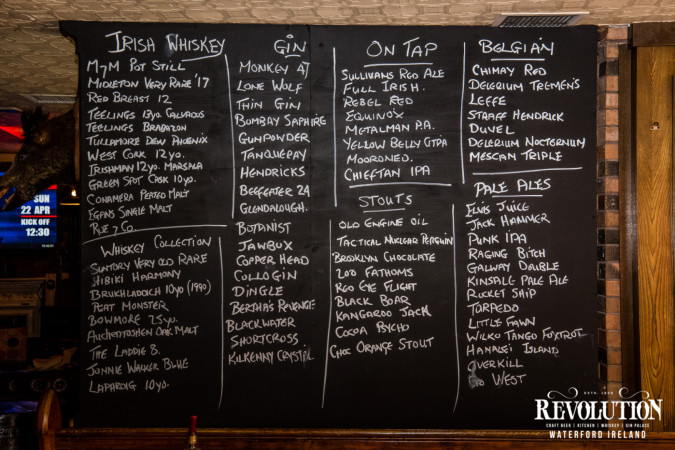 IRISH WHISKEY
M&M POT STILL
MIDLETON VERY RARE '17
RED BREAST 12
TEELINGS 13yo. CALVADOS
TEELINGS BRABAZON
TULLAMORE DEW PHOENIX
WEST CORK 12 yo.
IRISHMAN 12yo. MARSALA
GREEN SPOT CASK 10yo.
CONAMERA PEATED MALT
EGANS SINGLE MALT
RYE & Co.
WHISKEY COLLECTION
SUNTORY VERY OLD RARE
HIBIKI HARMONY
BRUICHLADDICH 10yo (1990)
PEAT MONSTER
BOWMORE 25yo.
AUCHENTOSHEN OAK MALT
THE LADDIE 8.
JONNIE WALKER BLUE
LAPARDIG 10yo.
GIN
MONKEY 47
LONE WOLF
THIN GIN
BOMBAY SAPHIRE
GUNPOWDER
TANQUERAY
HENDRICKS
BEEFEATER 24
GLENDALOUGH.
BOTANIST
JAWBOX
COPPER HEAD
COLLOGIN
DINGLE
BERTHA'S REVENGE
BLACKWATER
SHORTCROSS
KILKENNY CRYSTAL
ON TAP
SULLIVANS RED ALE
FULL IRISH.
REBEL RED
EQUINOX
METALMAN P.A.
YELLOW BELLY CTPA
MOORONEO.
CHIEFTAN IPA
STOUTS
OLD ENGINE OIL
TACTICAL NUCLEAR PENGUIN
BROOKLYN CHOCOLATE
200 FATHOMS
RED EYE FLIGHT
BLACK BOAR
KANGAROO JACK
COCOA PSYCHO
CHOC ORANGE STOUT
BELGIAN
CHIMAY RED
DELERIUM TREMENS
LEFFE
STRAFF HENDRICK
DUVEL
DELERIUM NOCTURNIUM
MESCAN TRIPLE
PALE ALES
ELVIS JUICE
JACK HAMMER
PUNK IPA
RAGING BITCH
GALWAY DOUBLE
KINSALE PALE ALE
ROCKET SHIP
TORPEDO
LITTLE FAWN
WILKO TANGO FOXTROT
HANALEI ISLAND
OVERKILL
GO WEST
SUN
22 APR
KICK OFF
12:30
ESTD · 1892
REVOLUTION
CRAFT BEER | KITCHEN | WHISKEY | GIN PALACE
WATERFORD IRELAND